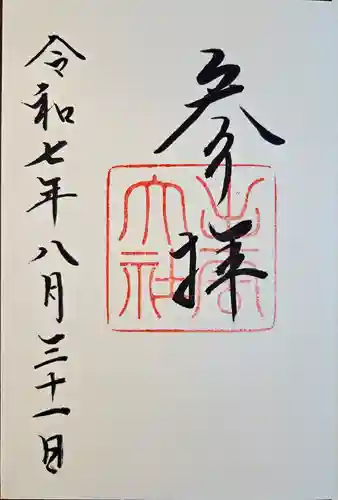 参拝
出雲大社
令和七年八月三十一日